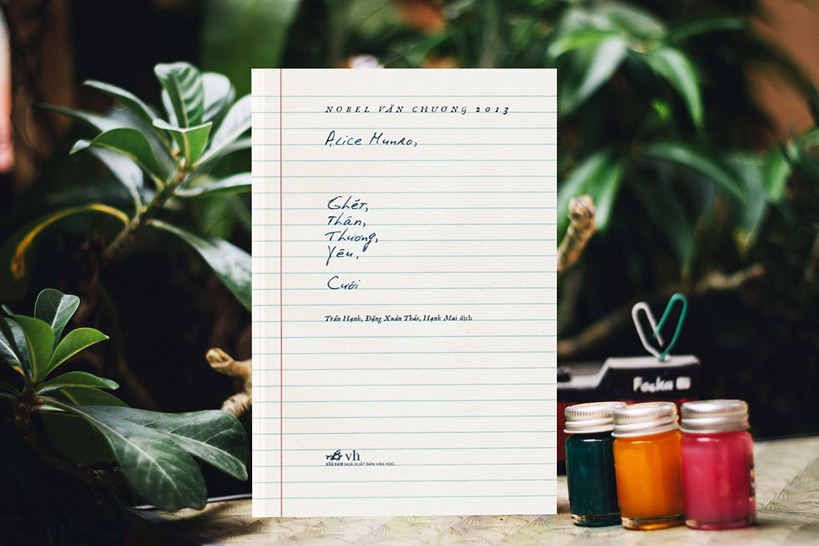 NOBEL VĂN CHƯƠNG 2013
Alice Munro,
Ghét,
Thân,
Thương,
Yêu,
Cưới
Trần Hạnh, Đặng Xuân Thảo, Hạnh Mai dịch
vh
nhã nam NHÀ XUẤT BẢN VĂN HỌC
Focku